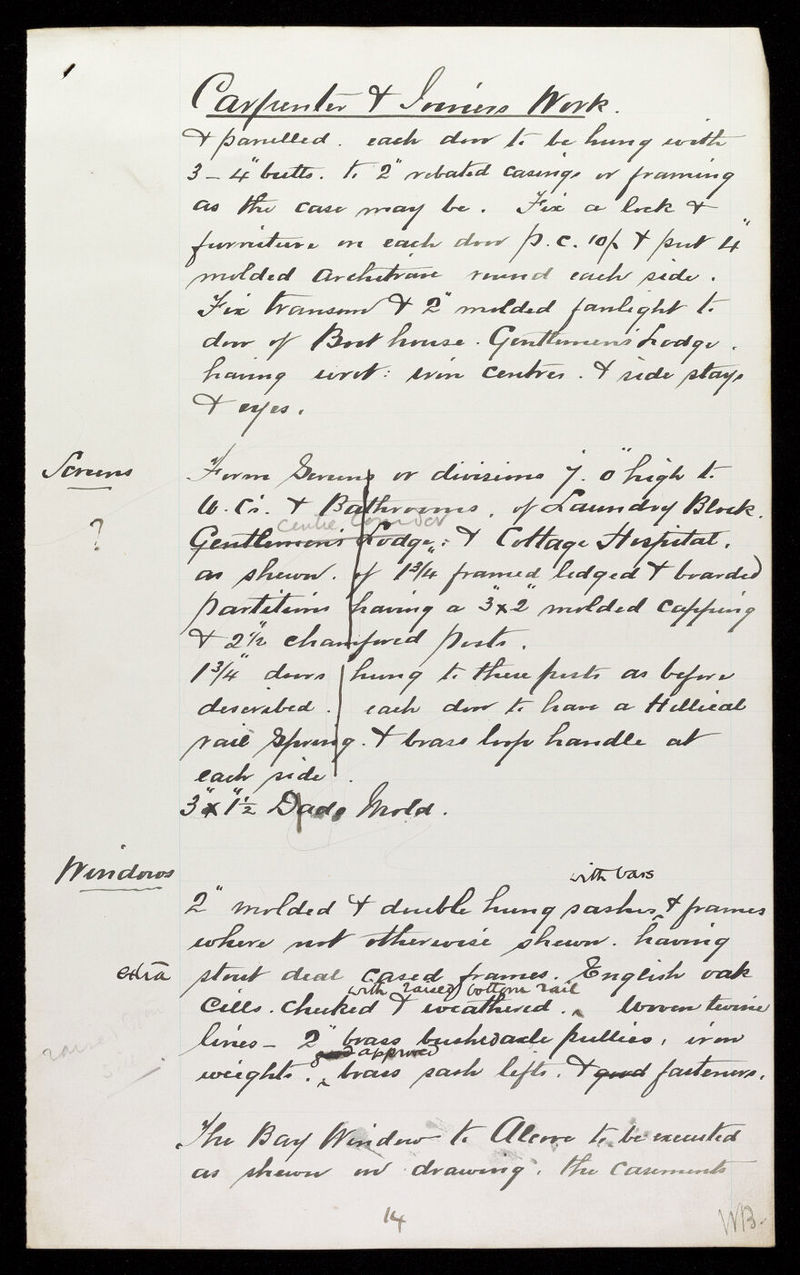 Carpenter & Joiners Work.
& panelled. each door to be hung with
3 – 4" butts. to 2" rebated casings or framing
as the case may be. Fix a lock &
furniture on each door p.c. 10/- & put 4"
molded Architrave round each side.
Fix transom & 2" molded fanlight to
door of Boot house. Gentlemen's Lodge.
having wrot: iron centres. & side stays
& eyes.
Screens
Form Screens or divisions 7'. 0" high to
W.C's. & Bathrooms. of Laundry Block.
centre corridor
?
Gentlemen's Lodge: & Cottage Hospital.
as shewn. of 1 3/4" framed ledged & boarded
partitions having a 3"x2" molded capping
& 2 1/2" chamfered posts.
1 3/4" doors hung to these posts as before
described. each door to have a Hellical
rail Spring. & brass loop handle at
each side.
3" x 1 1/2" Dado Mold.
Windows
with bars
2" molded & double hung sashes & frames
where not otherwise shewn. having
extra
stout deal cased frames. English oak
with raised bottom rail
cills. checked & weathered. Woven twine
lines – 2" brass bushed axle pullies, iron
good approved
weights. brass sash lifts. & good fasteners.
The Bay Window to Alcove to be executed
as shewn on drawing. the casements
14
WB.